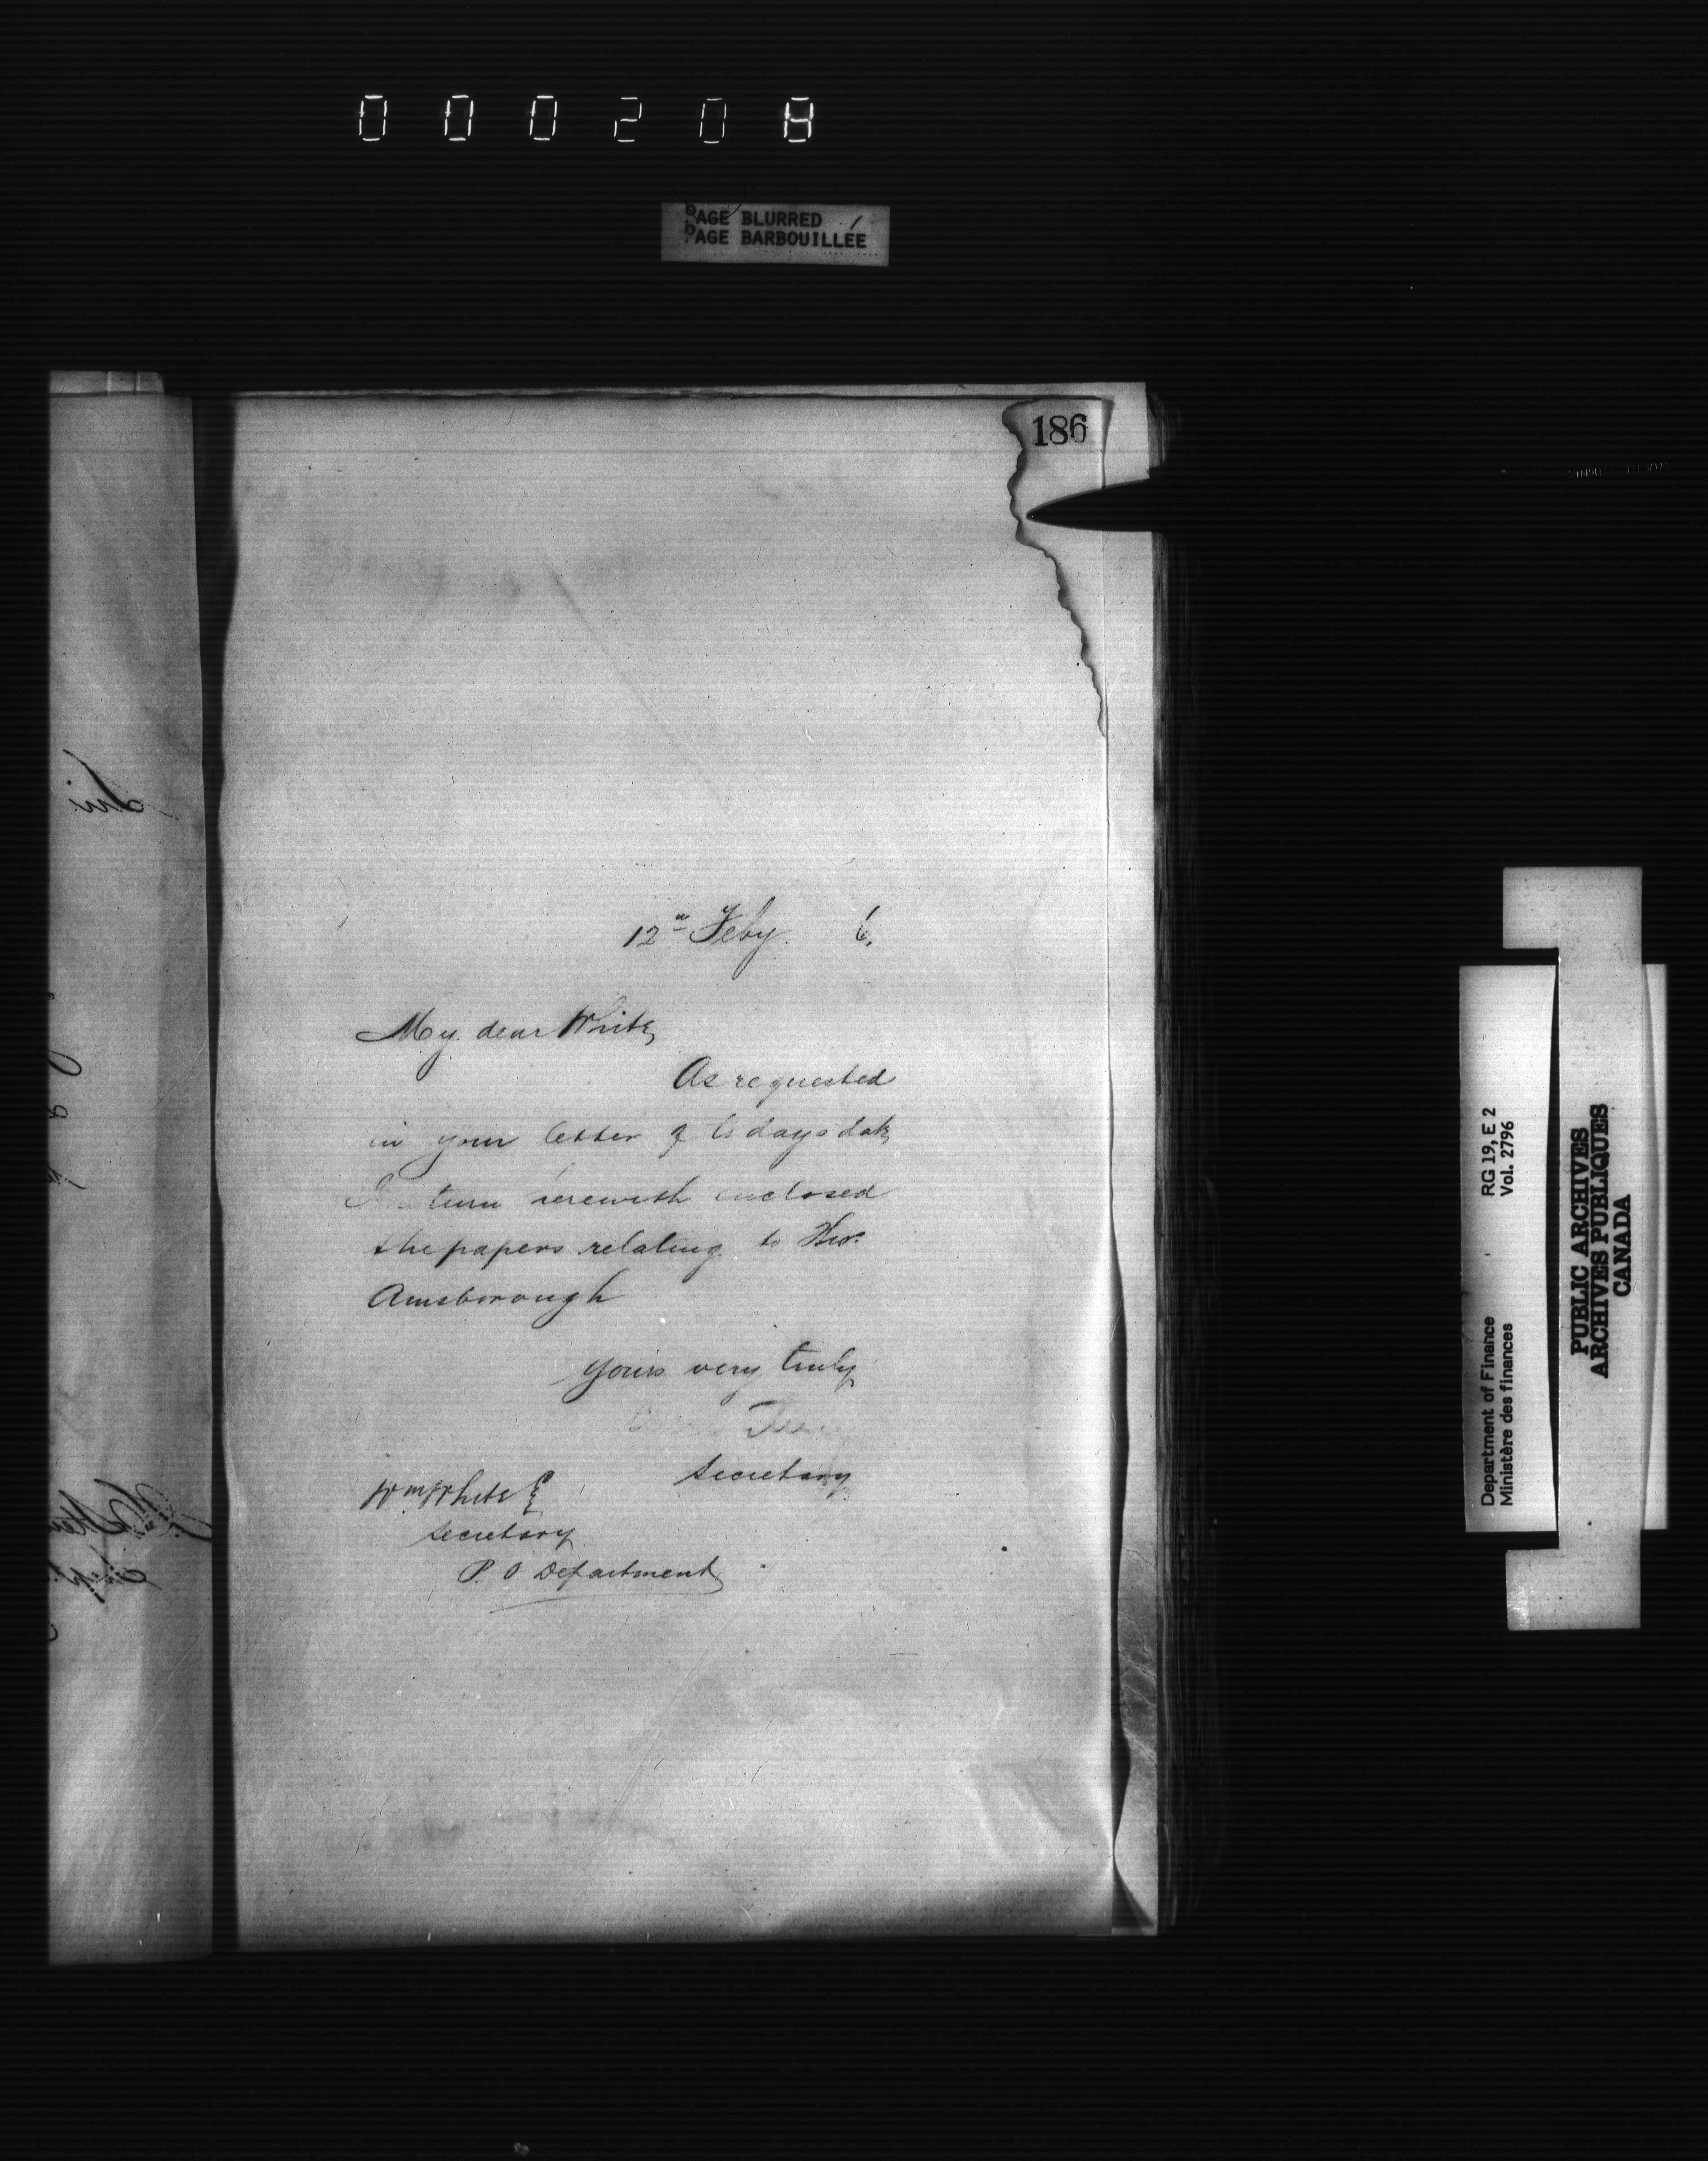 000208
PAGE BLURRED
PAGE BARBOUILLÉE
186
12th Feby. 6.
My dear White,
As requested
in your letter of to days date
I return herewith enclosed
the papers relating to Thos.
Amsborough
Yours very truly
Secretary
Wm White Esq
Secretary
P. O Department
Department of Finance
Ministère des finances
RG 19, E 2
Vol. 2796
PUBLIC ARCHIVES
ARCHIVES PUBLIQUES
CANADA